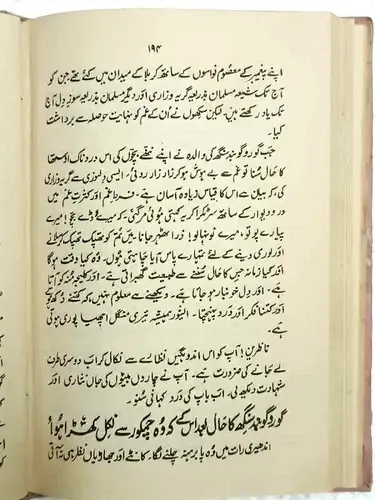 ۱۹۴
اپنے پیغمبر کے معصوم نواسوں کے ساتھ کربلا کے میدان میں کئے تھے جن کو
آج تک شیعہ مسلمان بذریعہ گریہ وزاری اور دیگر مسلمان بذریعہ سوز دل آج
تک یاد رکھتے ہیں۔ لیکن سکھوں نے اُن کے غم کو نہایت حوصلہ سے برداشت
کیا۔
جب گوروگوبند سنگھ کی والدہ نے اپنے ننھے بچوں کی اس دردناک اوستھا
کا حال سُنا تو غم سے بے ہوش ہو کر زار زار روئی۔ ایسی دلسوزی سے گریہ وزاری
کی، کہ بیان سے اس کا قیاس زیادہ آسان ہے۔ فرط غم اور کثرت غم میں
در و دیوار کے ساتھ سر ٹکرا کر یہ کہتی ہوئی مر گئی کہ میرے لاڈلے بچو! میرے
پیارے پوتو، میرے نونہالو! ذرا ٹھہر جانا۔ میں تم کو تھپک تھپک کر سُلانے
اور لوری دینے کے لئے تمہارے پاس آیا چاہتی ہوں۔ وہ کیا وقت ہوگا
اور کیا زمانہ جس کا حال سُننے سے طبیعت گھبراتی ہے۔ اور کلیجہ مُنہ کو آتا
ہے۔ اور دل خونبار ہو جاتا ہے۔ دیکھنے سے معلوم نہیں کہ کتنے دُکھ ہوتے
اور کتنا فکر اور درد پہنچتا۔ ایشور ہمیشہ تیری منگل اِچھیا پوری ہوتی
ہے۔
ناظرین! آپ کو اس اندوہگیں نظارے سے نکال کر اب دوسری طرف
لے جانے کی ضرورت ہے۔ آپ نے چاروں بیٹوں کی جاں نثاری اور
شہادت دیکھ لی۔ اب باپ کی درد کہانی سُنو۔
گوروگوبند سنگھ کا حال بعد اس کے کہ وُہ چمکور سے نکل کھڑا ہُوا
اندھیری رات میں وہ پا برہنہ چلنے لگا۔ کانٹے اور جھاڑیاں نظر ہی نہ آتی